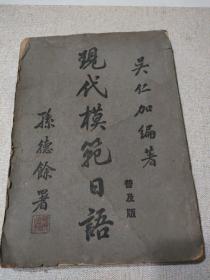 吴仁加編著
現代模範日語
普及版
孫德餘署